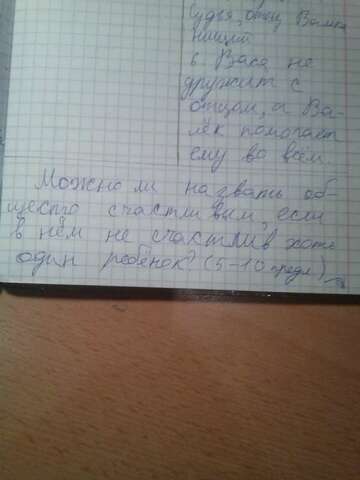 судья, отец Валька
нищий
6. Вася не
дружит с
отцом, а Ва-
лёк помогает
ему во всём
Можно ли назвать об
щество счастливым, если
в нём не счастлив хоте
один ребёнок? (5-10 предл)